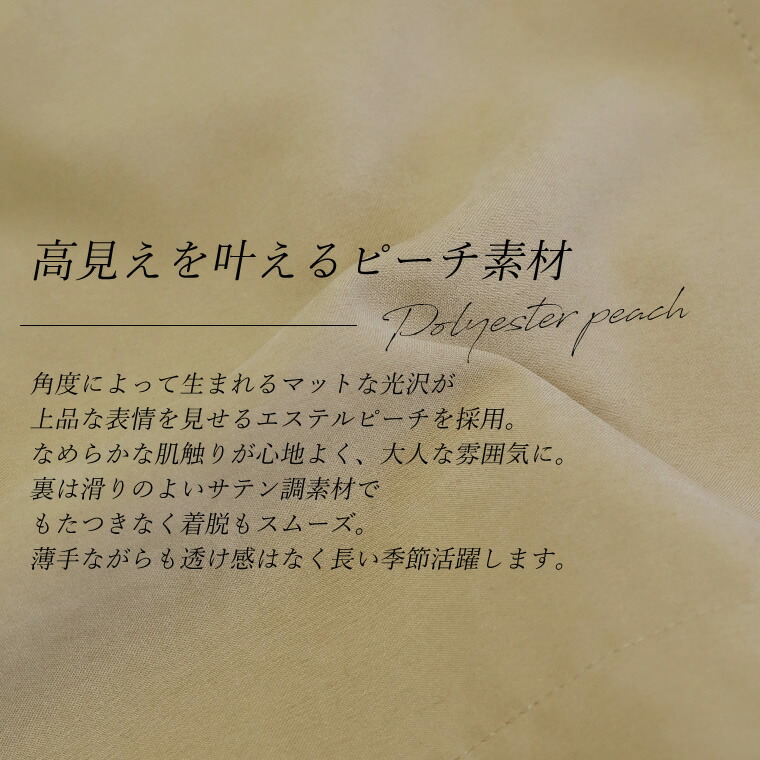 高見えを叶えるピーチ素材
Polyester peach
角度によって生まれるマットな光沢が
上品な表情を見せるエステルピーチを採用。
なめらかな肌触りが心地よく、大人な雰囲気に。
裏は滑りのよいサテン調素材で
もたつきなく着脱もスムーズ。
薄手ながらも透け感はなく長い季節活躍します。